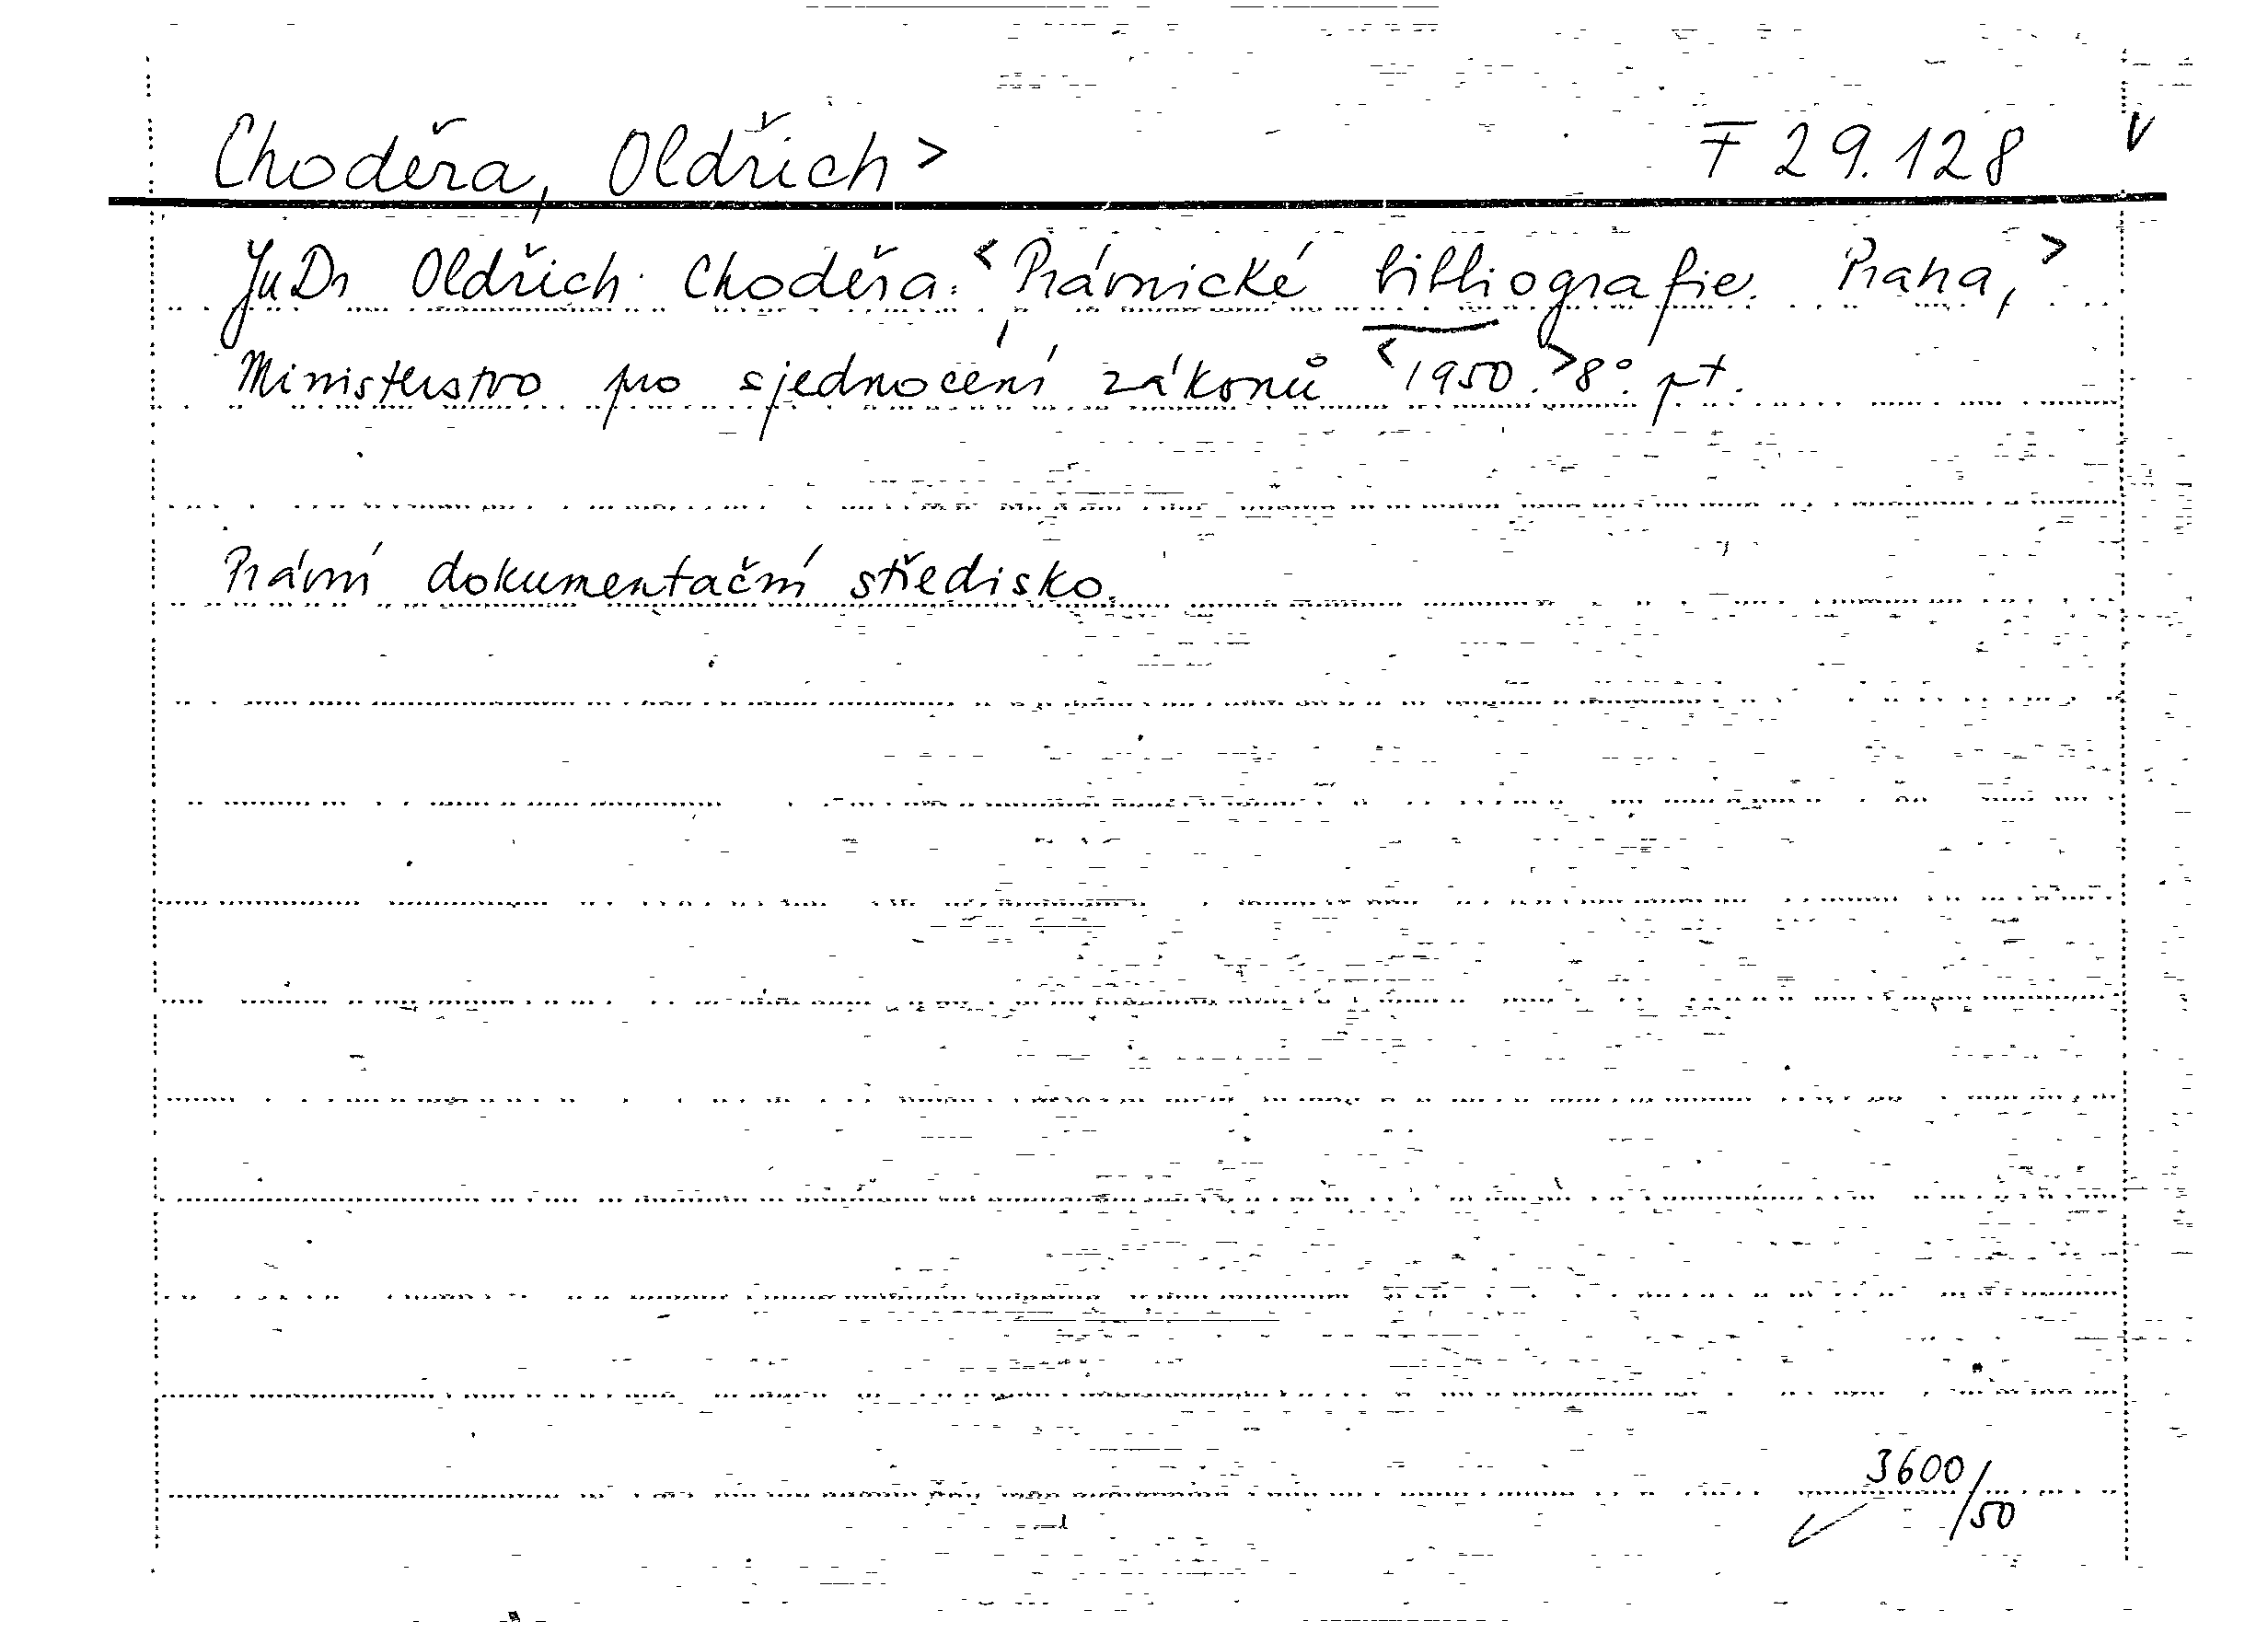 Choděra, Oldřich > F 29.128 v
JuDr Oldřich Choděra: < Právnické bibliografie. Praha, >
Ministerstvo pro sjednocení zákonů < 1950. > 8°. pt.
Právní dokumentační středisko.
3600/50